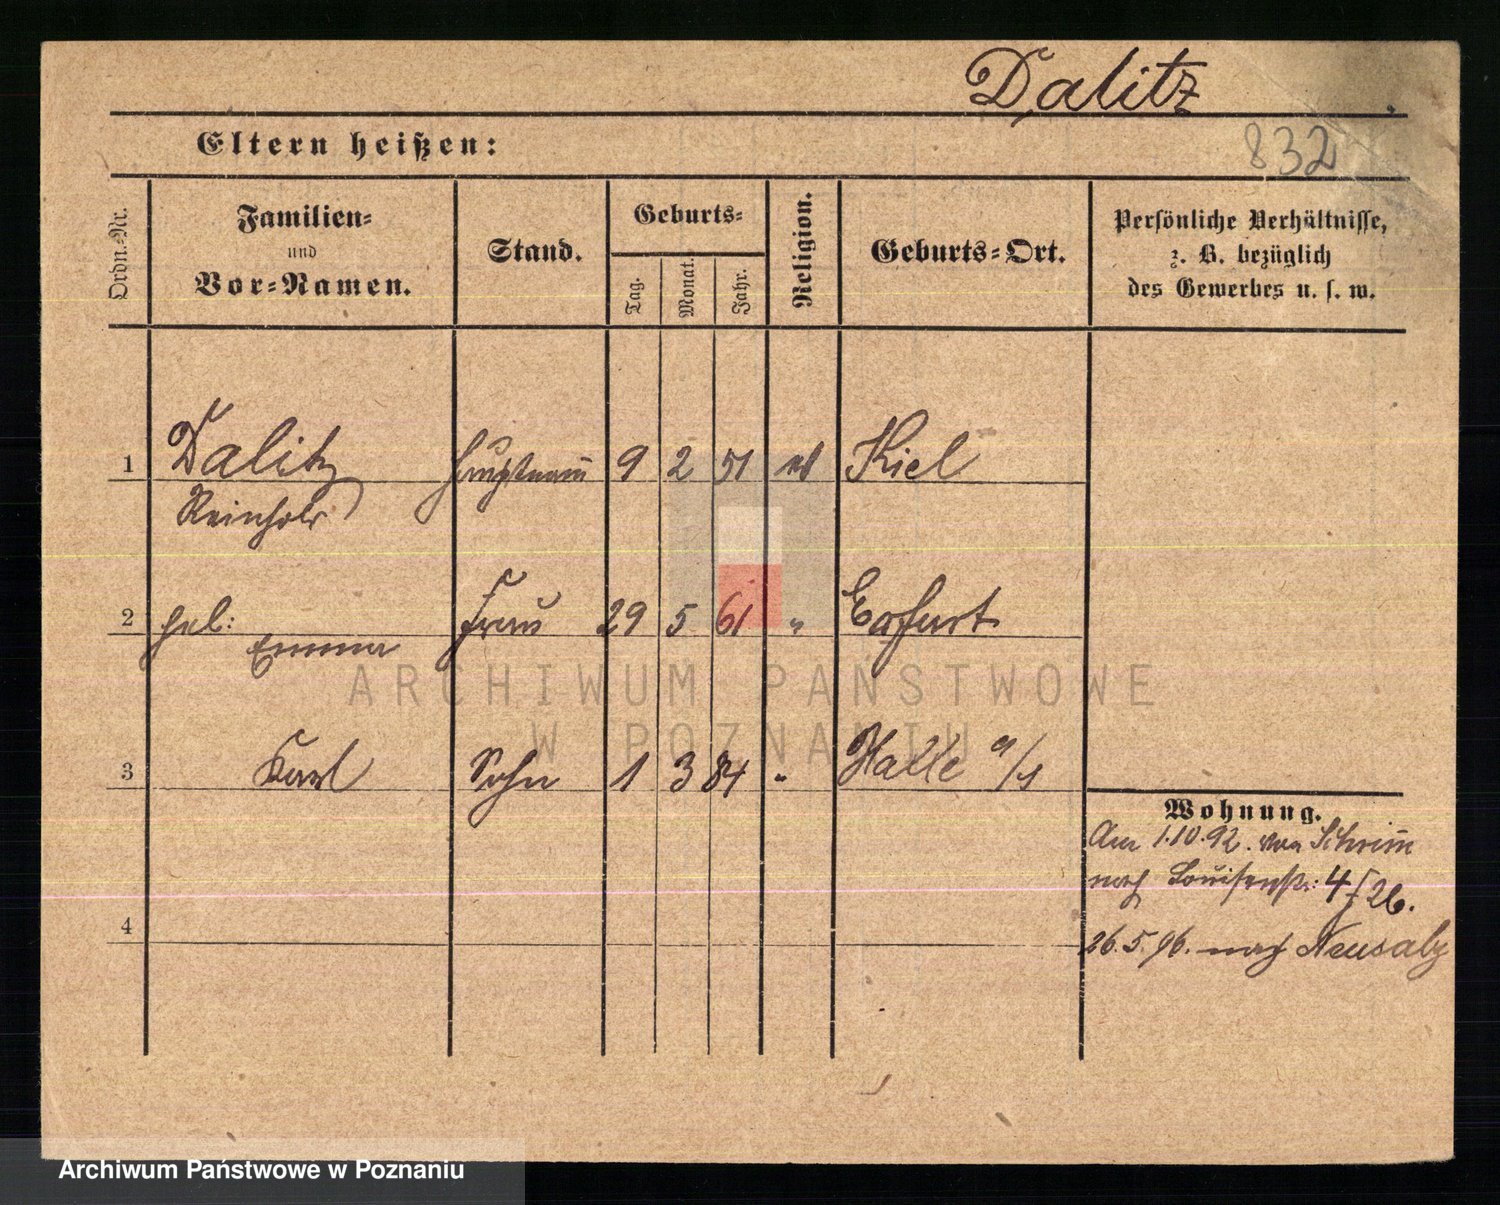 Dalitz
832
Eltern heißen:
Ordn.-Nr.
Familien-
und
Vor-Namen.
Stand.
Geburts-
Tag.
Monat.
Jahr.
Religion.
Geburts-Ort.
Persönliche Verhältnisse,
z. B. bezüglich
des Gewerbes u. s. w.
1 Dalitz Hauptmann 9 2 51 ev Kiel
Reinhold
2 geb: Frau 29 5 61 " Erfurt
Emma
3 Karl Sohn 1 3 84 " Halle a/s
Wohnung.
Am 1.10.92. von Schrim̄
nach Louisenstr: 4/26.
4
26.5.96. nach Neusalz
ARCHIWUM PAŃSTWOWE
W POZNANIU
Archiwum Państwowe w Poznaniu